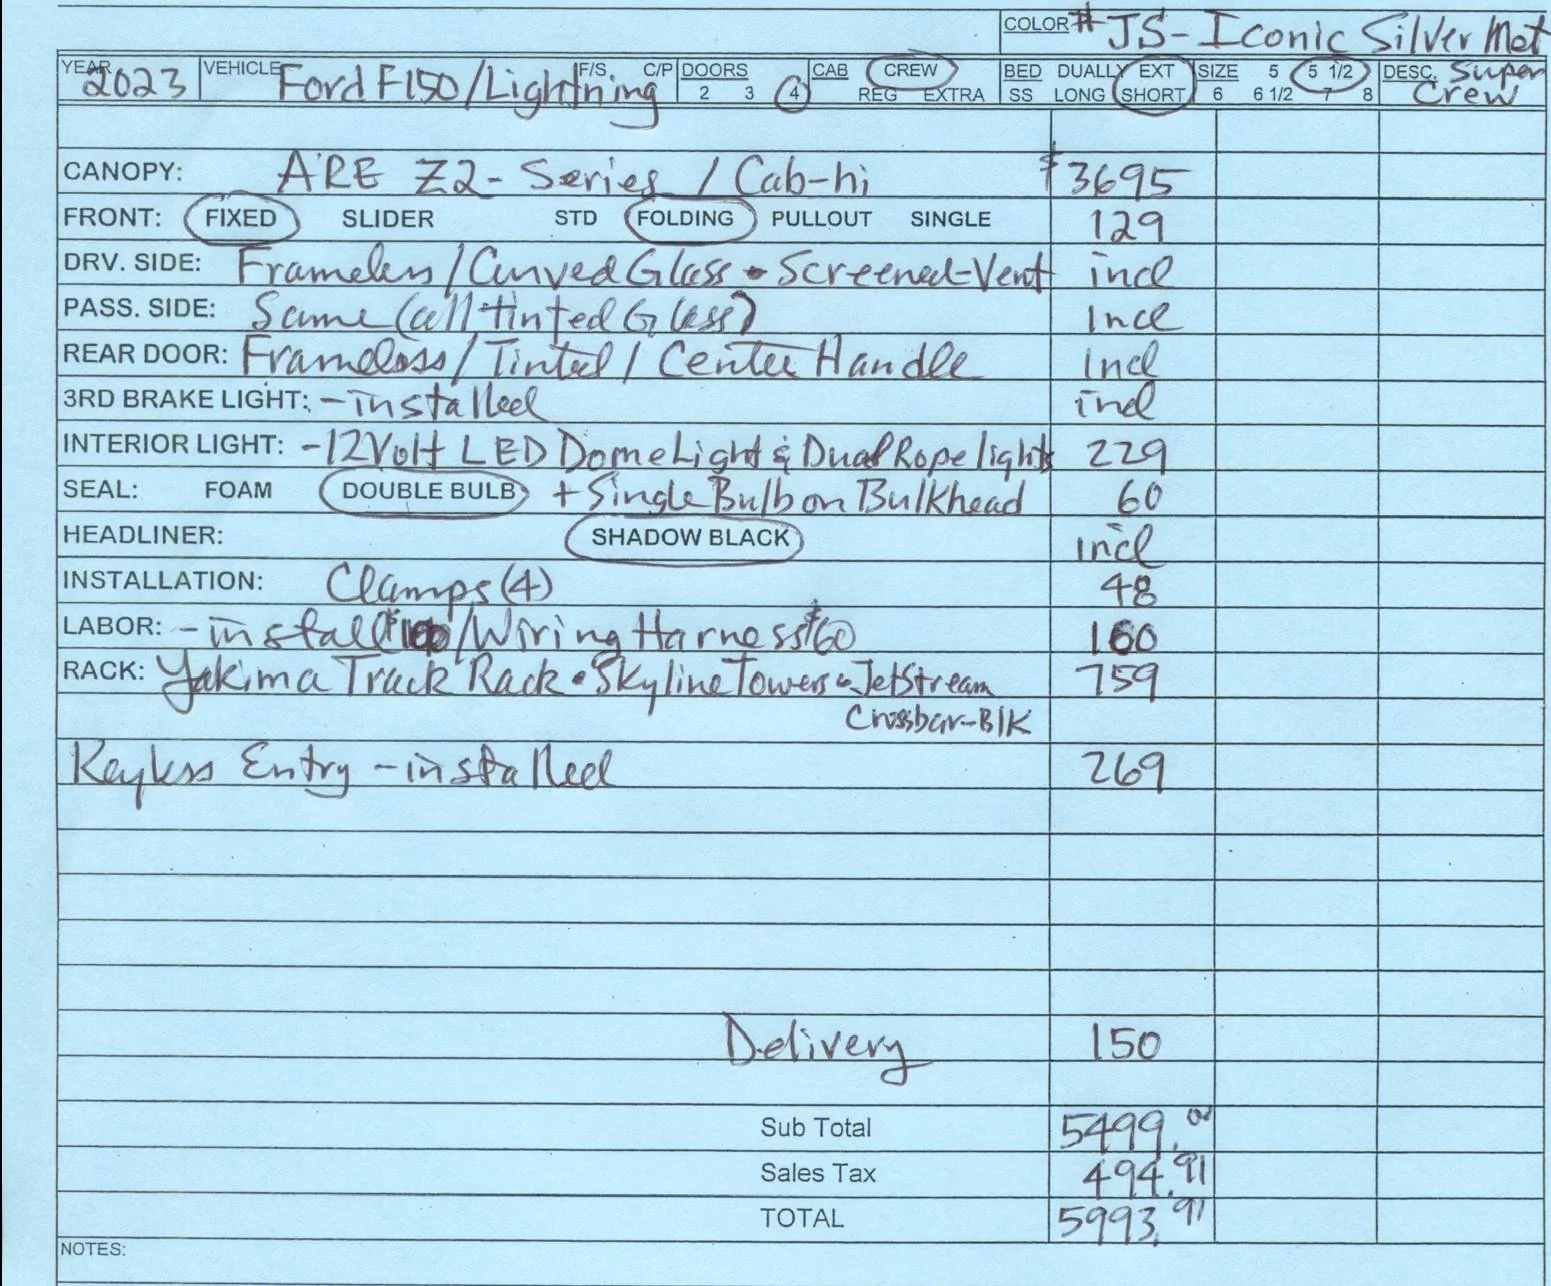 COLOR # JS - Iconic Silver Met
YEAR 2023 VEHICLE Ford F150/Lightning F/S C/P DOORS 2 3 4 CAB CREW REG EXTRA BED DUALLY EXT SS LONG SHORT SIZE 5 5 1/2 6 6 1/2 7 8 DESC. Super Crew
CANOPY: ARE Z2-Series / Cab-hi $3695
FRONT: FIXED SLIDER STD FOLDING PULLOUT SINGLE 129
DRV. SIDE: Frameless/Curved Glass • Screened-Vent incl
PASS. SIDE: Same (all tinted Glass) Incl
REAR DOOR: Frameless/Tinted/Center Handle Incl
3RD BRAKE LIGHT: -installed incl
INTERIOR LIGHT: -12Volt LED Dome Light & Dual Rope lights 229
SEAL: FOAM DOUBLE BULB + Single Bulb on Bulkhead 60
HEADLINER: SHADOW BLACK incl
INSTALLATION: Clamps (4) 48
LABOR: -install $100/Wiring Harness $60 160
RACK: Yakima Track Rack • Skyline Towers • JetStream 759
Crossbar-Blk
Keyless Entry -installed 269
Delivery 150
Sub Total 5499.00
Sales Tax 494.91
TOTAL 5993.91
NOTES: